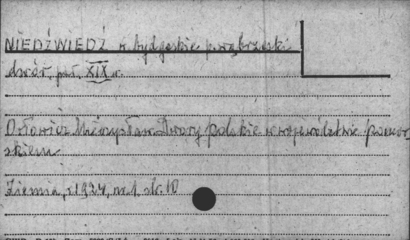 NIEDŹWIEDŹ w. bydgoskie p. wąbrzeski
dwór, poł. XIX w.
Orłowicz Mieczysław Dwory polskie w województwie pomor
skiem
Ziemia, r. 1924, nr 1, st. 10